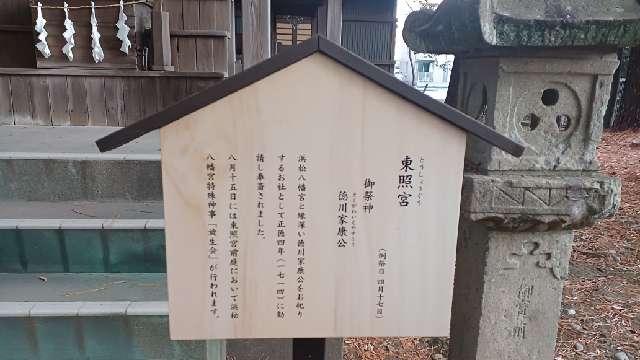 とうしょうぐう
東照宮
(例祭日 四月十七日)
御祭神
とくがわいえやすこう
徳川家康公
浜松八幡宮と縁深い徳川家康公をお祀り
するお社として正徳四年(一七一四)に勧
請し奉斎されました。
八月十五日には東照宮前庭において浜松
八幡宮特殊神事「放生会」が行われます。